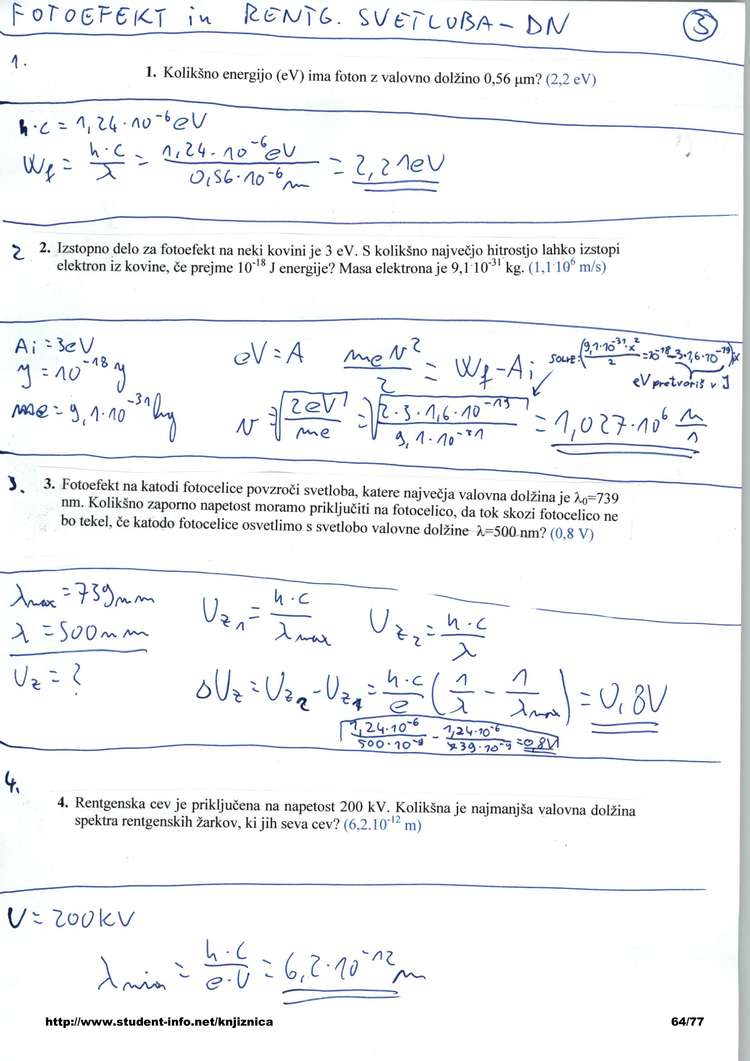 FOTOEFEKT in RENTG. SVETLOBA - DN 3
1.
1. Kolikšno energijo (eV) ima foton z valovno dolžino 0,56 μm? (2,2 eV)
h·c = 1,24·10⁻⁶eV
W_f = h·c/λ = 1,24·10⁻⁶eV / 0,56·10⁻⁶m = 2,21eV
2
2. Izstopno delo za fotoefekt na neki kovini je 3 eV. S kolikšno največjo hitrostjo lahko izstopi
elektron iz kovine, če prejme 10⁻¹⁸ J energije? Masa elektrona je 9,1·10⁻³¹ kg. (1,1·10⁶ m/s)
Ai = 3eV
y = 10⁻¹⁸ y
me = 9,1·10⁻³¹kg
eV = A
me v²/2 = W_f - Ai
SOLVE: (9,1·10⁻³¹·x²/2 = 10⁻¹⁸ - 3·1,6·10⁻¹⁹)x
eV pretvoriš v J
v = √(2eV/me) = √(2·3·1,6·10⁻¹⁹/9,1·10⁻³¹) = 1,027·10⁶ m/s
3.
3. Fotoefekt na katodi fotocelice povzroči svetloba, katere največja valovna dolžina je λ₀=739
nm. Kolikšno zaporno napetost moramo priključiti na fotocelico, da tok skozi fotocelico ne
bo tekel, če katodo fotocelice osvetlimo s svetlobo valovne dolžine λ=500 nm? (0,8 V)
λmax = 739nm
λ = 500nm
Uz = ?
Uz₁ = h·c/λmax
Uz₂ = h·c/λ
ΔUz = Uz₂ - Uz₁ = h·c/e (1/λ - 1/λmax) = 0,8V
1,24·10⁻⁶/500·10⁻⁹ - 1,24·10⁻⁶/739·10⁻⁹ = 0,8V
4.
4. Rentgenska cev je priključena na napetost 200 kV. Kolikšna je najmanjša valovna dolžina
spektra rentgenskih žarkov, ki jih seva cev? (6,2.10⁻¹² m)
U = 200kV
λmin = h·c/e·U = 6,2·10⁻¹² m
http://www.student-info.net/knjiznica 64/77